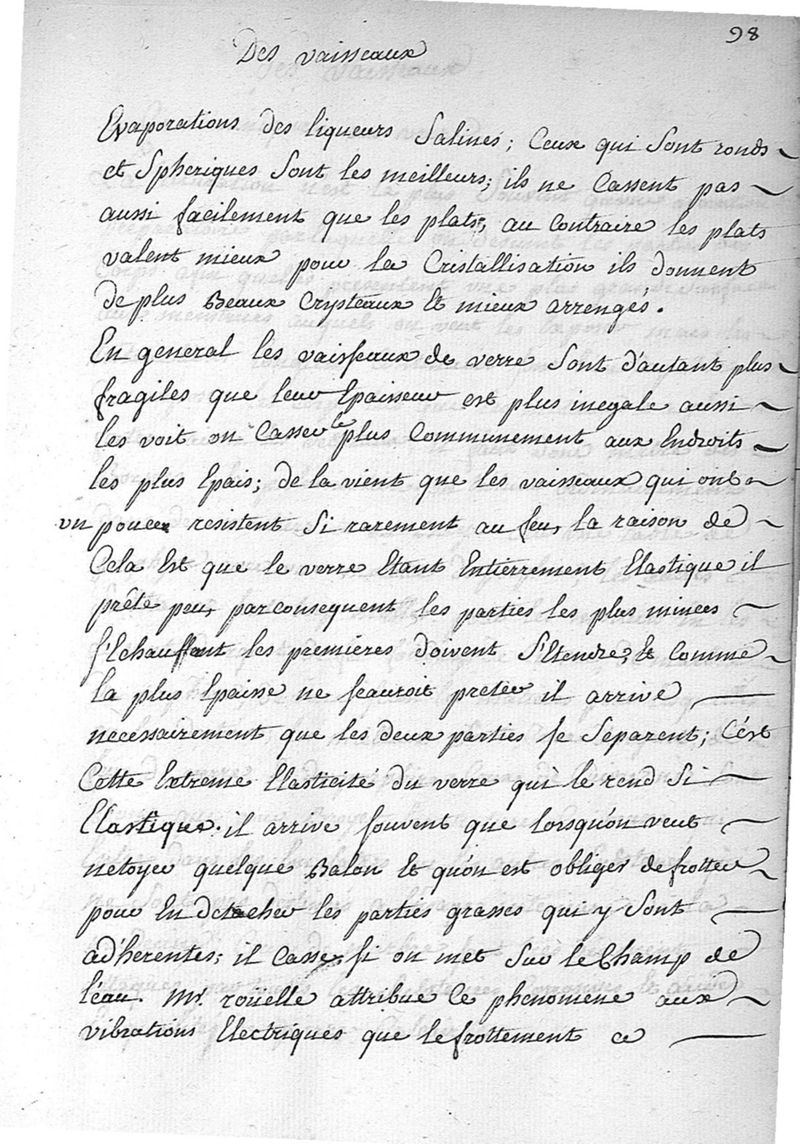 98
Des vaisseaux
Evaporations des liqueurs Salines; Ceux qui Sont ronds
et Spheriques Sont les meilleurs; ils ne Cassent pas
aussi facilement que les plats, au Contraire les plats
valent mieux pour la Cristallisation ils donnent
de plus Beaux Crysteaux Et mieux arrenges.
En general les vaisseaux de verre Sont d'autant plus
fragiles que leur Epaisseur est plus inegale aussi
les voit on Casser le plus Communement aux Endroits
les plus Epais; de la vient que les vaisseaux qui ont
un pouce resistent Si rarement au feu, la raison de
Cela Est que le verre Etant Entièrement Elastique il
prête peu, par consequent les parties les plus minces
s'Echauffant les premieres doivent S'Etendre, Et Comme
la plus Epaisse ne sauroit preter il arrive
necessairement que les deux parties se Separent; C'ést
Cette Extreme Elasticité du verre qui le rend Si
Elastique. il arrive souvent que lorsqu'on veut
netoyer quelque Balon Et qu'on est obliger de frotter
pour En detacher les parties grasses qui y Sont
adherentes; il Casse, si on met Sur le Champ de
l'eau. Mr. roüelle attribue Ce phenomene aux
vibrations Electriques que le frottement a